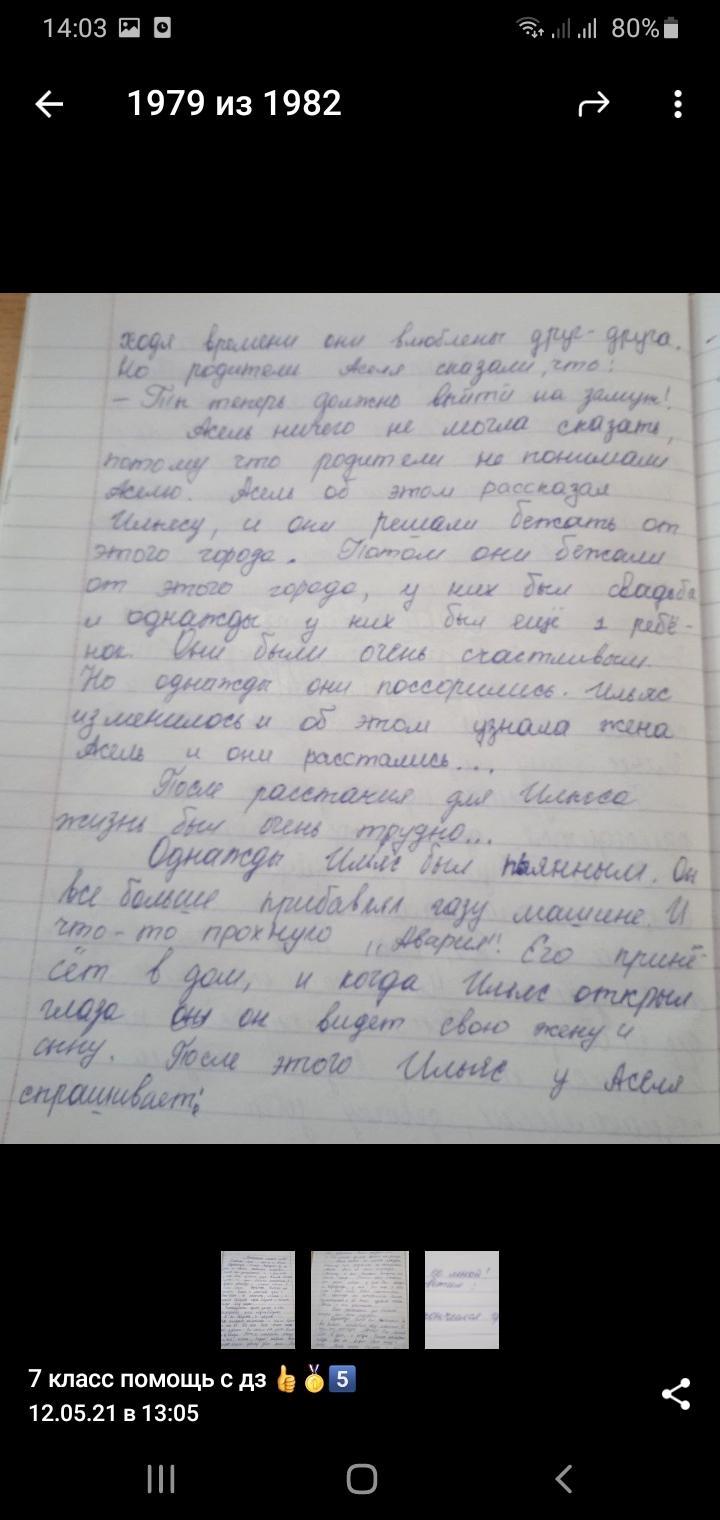 14:03
80%
1979 из 1982
ходя времени они влюблены друг-друга.
Но родители Аселя сказали, что:
– Ты теперь должно выйти на замуж!
Асель ничего не могла сказать,
потому что родители не понимали
Аселю. Асель об этом рассказал
Ильясу, и они решали бежать от
этого города. Потом они бежали
от этого города, у них был свадьба
и однажды у них был ещё 1 ребё-
нок. Они были очень счастливым.
Но однажды они поссорились. Ильяс
изменилось и об этом узнала жена
Асель и они расстались...
После расстания для Ильяса
жизнь был очень трудно...
Однажды Ильяс был пьянным. Он
все больше прибавлял газу машине. И
что-то прохнуло ,,Авария"! Его принё-
сёт в дом, и когда Ильяс открыл
глаза он видет свою жену и
сыну. После этого Ильяс у Аселя
спрашивает:
со мной!
7 класс помощь с дз 👍🥇5️⃣
12.05.21 в 13:05